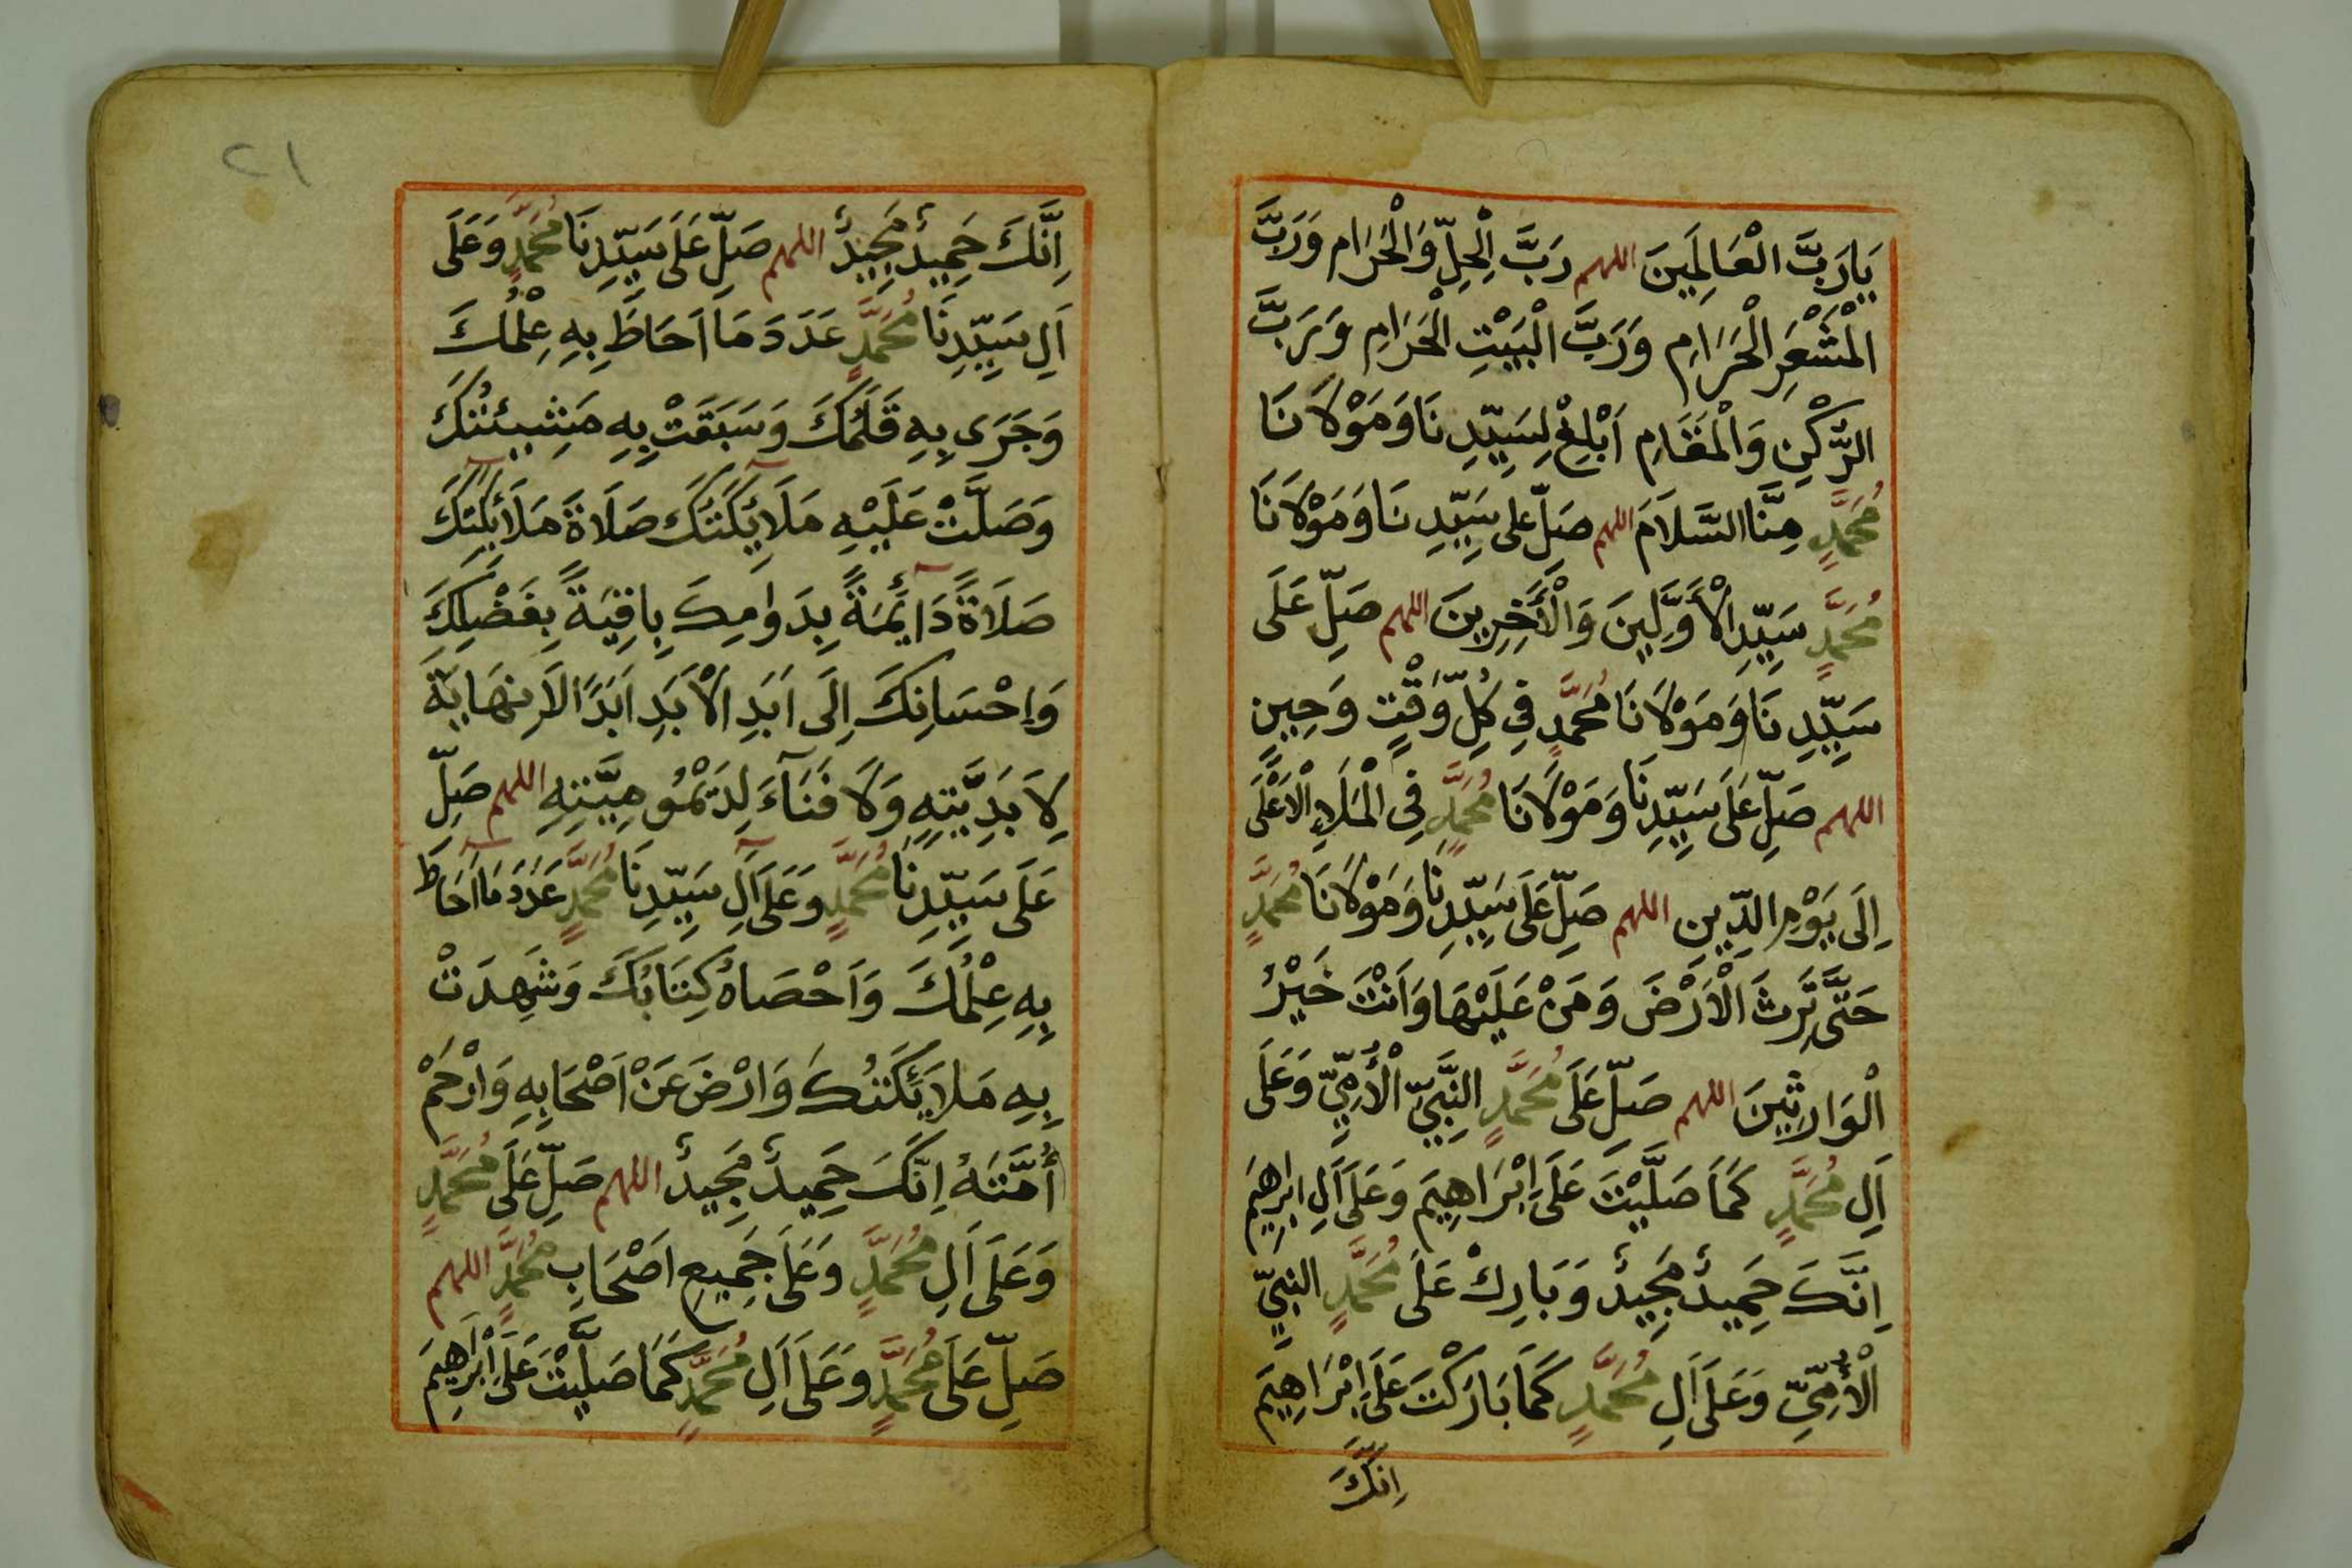 يَارَبَّ الْعَالَمِينَ اللهم رَبَّ الْحِلِّ وَالْحَرَامِ وَرَبَّ
الْمَشْعَرِ الْحَرَامِ وَرَبَّ الْبَيْتِ الْحَرَامِ وَرَبَّ
الرُّكْنِ وَالْمَقَامِ اَبْلِغْ لِسَيِّدِنَا وَمَوْلَانَا
مُحَمَّدٍ مِنَّا السَّلَامَ اللهم صَلِّ على سَيِّدِنَا وَمَوْلَانَا
مُحَمَّدٍ سَيِّدِ الْأَوَّلِينَ وَالْأَخِرِينَ اللهم صَلِّ عَلَى
سَيِّدِنَا وَمَوْلَانَا مُحَمَّدٍ فِي كُلِّ وَقْتٍ وَحِينٍ
اللهم صَلِّ عَلَى سَيِّدِنَا وَمَوْلَانَا مُحَمَّدٍ فِي الْمَلَاءِ الْاَعْلَى
اِلَى يَوْمِ الدِّينِ اللهم صَلِّ عَلَى سَيِّدِنَا وَمَوْلَانَا مُحَمَّدٍ
حَتَّى تَرِثَ الْاَرْضَ وَمَنْ عَلَيْهَا وَاَنْتَ خَيْرُ
الْوَارِثِينَ اللهم صَلِّ عَلَى مُحَمَّدٍ النَّبِيِّ الْأُمِّيِّ وَعَلَى
اَلِ مُحَمَّدٍ كَمَا صَلَّيْتَ عَلَى اِبْرَاهِيمَ وَعَلَى اَلِ ابْرهِيمَ
اِنَّكَ حَمِيدٌ مَجِيدٌ وَبَارِكْ عَلَى مُحَمَّدٍ النَّبِيِّ
الْأُمِّيِّ وَعَلَى اَلِ مُحَمَّدٍ كَمَا بَارَكْتَ عَلَى اِبْرَاهِيمَ
اِنَّكَ
٢١
اِنَّكَ حَمِيدٌ مَجِيدٌ اللهم صَلِّ عَلَى سَيِّدِنَا مُحَمَّدٍ وَعَلَى
اَلِ سَيِّدِنَا مُحَمَّدٍ عَدَدَ مَا اَحَاطَ بِهِ عِلْمُكَ
وَجَرَى بِهِ قَلَمُكَ وَسَبَقَتْ بِهِ مَشِيئَتُكَ
وَصَلَّتْ عَلَيْهِ مَلَائِكَتُكَ صَلَاةَ مَلَائِكَتِكَ
صَلَاةً دَائِمَةً بِدَوامِكَ بِاقِيَةً بِفَضْلِكَ
وَاِحْسَانِكَ اِلَى اَبَدِ الْاَبَدِ اَبَدًا لَا نِهَايَةَ
لِاَبَدِيَّتِهِ وَلَا فَنَآءَ لِدَيْمُومِيَّتِهِ اللهم صَلِّ
عَلَى سَيِّدِنَا مُحَمَّدٍ وَعَلَى اَلِ سَيِّدِنَا مُحَمَّدٍ عَدَدَ مَا اَحَاطَ
بِهِ عِلْمُكَ وَاَحْصَاهُ كِتَابُكَ وَشَهِدَتْ
بِهِ مَلَائِكَتُكَ وَارْضَ عَنْ اَصْحَابِهِ وَارْحَمْ
أُمَّتَهُ اِنَّكَ حَمِيدٌ مَجِيدٌ اللهم صَلِّ عَلَى مُحَمَّدٍ
وَعَلَى اَلِ مُحَمَّدٍ وَعَلَى جَمِيعِ اَصْحَابِ مُحَمَّدٍ اللهم
صَلِّ عَلَى مُحَمَّدٍ وَعَلَى اَلِ مُحَمَّدٍ كَمَا صَلَّيْتَ عَلَى اِبْرَاهِيمَ